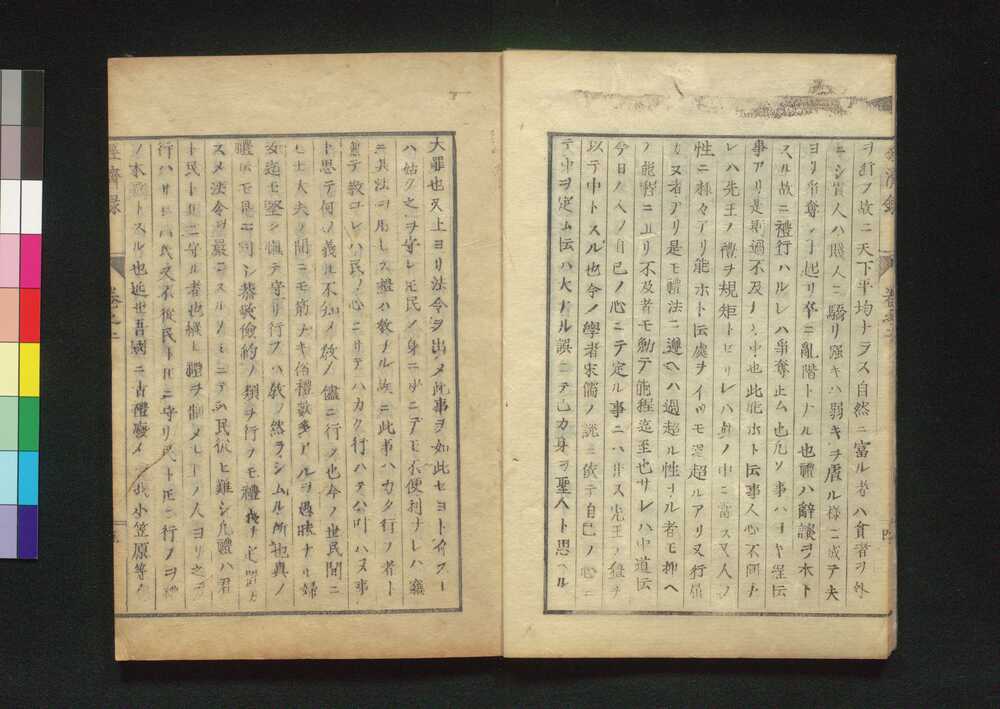 ヲ行フ故ニ天下平均ナラス自然ニ富ル者ハ貧者ヲ外
ニシ貴人ハ賤人ニ驕リ强キハ弱キヲ虐ル様ニ成テ夫
ヨリ爭奪ノ事起リ卒ニ亂階トナル也禮ハ辭讓ヲ本ト
スル故ニ禮行ハルレハ爭奪止ム也凡ソ事ハ一ヤ程伝
事アリ是則過不及ノ中也此能ホト伝事人心不同ナ
レハ先王ノ禮ヲ規矩トセサレハ身ノ中ニ當ス又人ノ
性ニ様々アリ能ホト伝處ヲイツモ過超ルアリ又行届
カヌ者アリ是モ禮法ニ遵ヘハ過超ル性ナル者モ抑ヘ
ノ能程ニ止リ不及者モ勤テ能程迄至也サレハ中道伝
今日ノ人ノ自己ノ心ニテ定ル事ニハ非ス先王ノ禮ヲ
以テ中トスル也今ノ學者宋儒ノ説ニ依テ自己ノ心ニ
テ中ヲ定ム伝ハ大ナル誤ニテ己カ身ヲ聖人ト思ヘル
大罪也又上ヨリ法令ヲ出シメ此事ヲ如此セヨト令スー
ハ姑ク之ヲ守レ𪜈民ノ身ニ少ニテモ不便利ナレハ竊
ニ其法ヲ用レス禮ハ教ナル故ニ此事ハカク行フ者ト
兼テ教ユレハ民ノ心ニサテハカク行ハテハ叶ハヌ事
ト思テ何ノ義ル不知メ教ノ儘ニ行フ也今ノ世民間ニ
モ士大夫ノ間ニモ筋ナキ俗禮數多アルヲ愚昧ナル婦
女迄モ堅ク慎テ守リ行フハ教ノ然ラシムル所也真ノ
禮伝モ是ニ同シ恭敬儉約ノ類ヲ行フモ禮
スメ法令ヲ嚴ニスルノミニテハ民從ヒ難シ凡禮ハ君
ト民ト俱ニ守ル者也縱ヒ禮ヲ制メモ上ノ人ヨリ之ヲ
行ハサレハ民又不從民ト𪜈ニ守リ民ト𪜈ニ行フヲ禮
ノ本意トスル也近世吾國ニ古禮廢メ 小笠原等